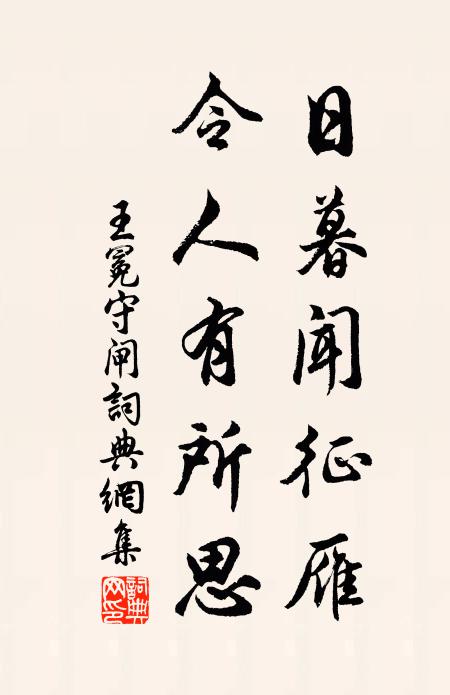 日暮聞征雁
令人有所思
王冕守閘詞典網集
詞典网印